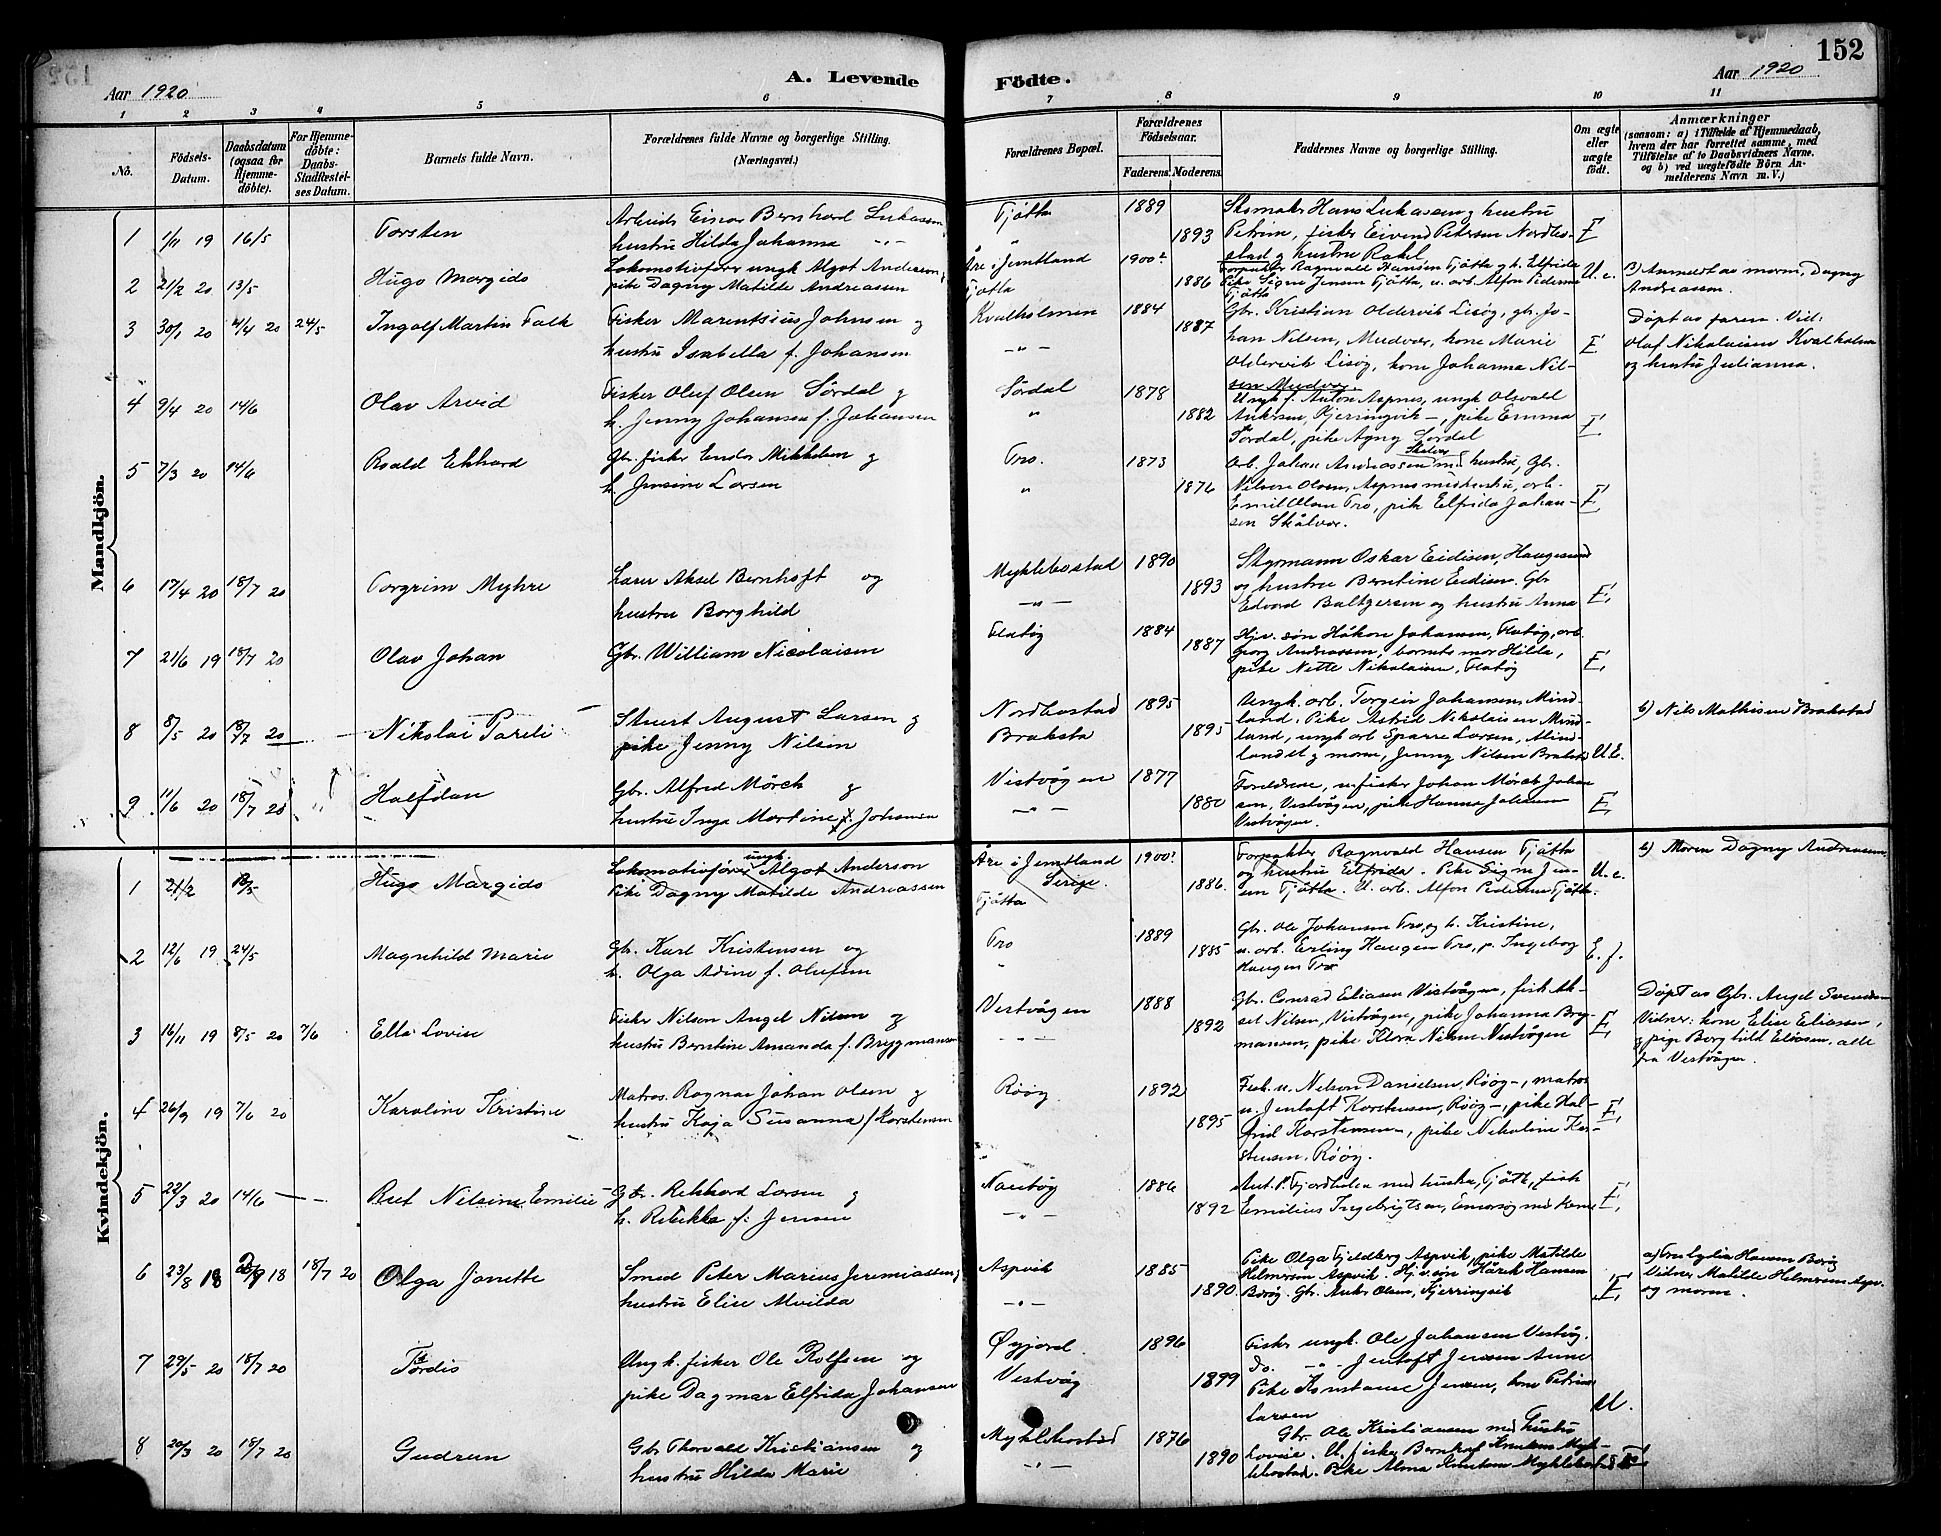 152
A. Levende Födte.
Aar 1920
Aar 1920
1 2 3 4 5 6 7 8 9 10 11
No.
Födsels-Datum.
Daabsdatum (ogsaa for Hjemme-döbte).
For Hjemme-döbte: Daabs-Stadfestel-ses Datum.
Barnets fulde Navn.
Forældrenes fulde Navne og borgerlige Stilling. (Næringsvei.)
Forældrenes Bopæl.
Forældrenes Födselsaar.
Faderens. Moderens.
Faddernes Navne og borgerlige Stilling.
Om ægte eller uægte födt.
Anmærkninger
(saasom: a) i Tilfælde af Hjemmedaab, hvem der har forrettet samme, med Tilföielse af to Daabsvidners Navne. og b) ved uægtefödte Börn Anmelderens Navn m. V.)
Mandkjön.
1 1/11 19 16/5 Torsten
Arbeids Einar Bernhard Lukassen
hustru Hilda Johanna -"-
Tjøtta
"
1889 1893
Skomaker Hans Lukassen og hustru
Petrine, fisker Eivind Petersen Nordbo-
stad og hustru Rakel
E
2 21/2 20 13/5 Hugo Margido
Lokomotivfører ungk Algot Anderson,
pike Dagny Matilde Andreassen
Åre i Jemtland
Tjøtta
1900? 1886
Forpakter Ragnvald Hansen Tjøtta og h. Elfrida
Pike Signe Jensen Tjøtta, u. arb. Alfon Pedersen
Tjøtta
U. e.
B) Anmeldt av moren, Dagny
Andreassen.
3 30/1 20 4/4 20 24/5 Ingolf Martin Falk
Fisker Marentsius Johnsen og
hustru Isabella f. Johansen
Kvalholmen
-"-
1884 1887
Gbr. Kristian Oldervik Lisøg, gbr. Jo-
han Nilsen, Mudvær, kone Marie
Oldervik Lisøg, kone Johanna Nil-
sen Mudvær.
E
Døpt av faren. Vid:
Olaf Nikolaisen Kvalholmen
og hustru Julianna.
4 9/4 20 14/6 Olav Arvid
Fisker Oluf Olsen Sørdal og
h. Jenny Johansen f. Johansen
Sørdal
"
1878 1882
Ungk f. Anton Aspnes, ungk Olsvald
Ankersen, Kjerringvik -, pike Emma
Sørdal, pike Agny Sørdal
E
5 7/3 20 14/6 Roald Ekhard
Gbr. fisker Endor Mikkelsen og
h. Jensine Larsen
Tro.
"
1873 1876
Arb. Johan Andreassen Skålvær med hustru, Gbr.
Nilson Olsen, Aspnes med hustru, arb.
Emil Olsen Tro, pike Elfrida Johan-
sen Skålvær.
E
6 17/4 20 18/7 20 Torgrim Myhre
Lærer Aksel Bernhoft og
hustru Borghild
Myklebostad
-"-
1890 1893
Styrmann Oskar Eidisen, Haugesund
og hustru Berntine Eidisen. Gbr
Edvard Baltzersen og hustru Anna
E,
7 21/6 19 18/7 20 Olav Johan
Gbr. William Nicolaisen
Flatøg
1884 1887
Hjv. søn Håkon Johansen, Flatøg, arb.
Georg Andreassen, barnets mor Hilda,
pike Nette Nikolaisen, Flatøg
E,
8 8/5 20 18/7 20 Nikolai Pareli
Stuert August Larsen og
pike Jenny Nilsen
Nordbostad
Braksta
1895 1895
Ungk. arb. Torgein Johansen Mind-
land. Pike Astrid Nikolaisen Mind-
land, ungk arb Sparre Larsen, Mind-
landet og moren, Jenny Nilsen Brakst.
U.E.
b) Nils Mathisen Brakstad
9 11/6 20 18/7 20 Halfdan
Gbr. Alfred Mörch og
hustru Inga Martine f. Johansen
Vestvågen
-"-
1877 1880
Foreldrene, u. fisker Johan Mörch Johan
sen, Vestvågen, pike Hanna Johansen
Vestvågen.
E,
Kvindekjön.
1 21/2 13/5 Hugo Margido
Lokomotivfører ungk. Algot Anderson
Pike Dagny Matilde Andreassen
Åre i Jemtland
Serige.
Tjøtta
1900? 1886.
Forpakter Ragnvald Hansen Tjøtta
og hustru Elfrida. Pike Signe Jen-
sen Tjøtta. U. arb. Alfon Pedersen Tjøtta
U. e.
b) Moren Dagny Andreassen
2 12/6 19 24/5 Magnhild Marie
Gbr. Karl Kristensen og
h. Olga Adine f. Olufsen
Tro
"
1889 1885
Gbr. Ole Johansen Tro, og h. Kristine,
u. arb. Erling Haugen Tro, p. Ingeborg
Haugen Tro
E. f.
3 16/11 19 8/5 20 7/6 Ella Lovise
Fisker Nilson Angel Nilsen og
hustru Berntine Amanda f. Brygmansen
Vestvågen
-"-
1888 1892
Gbr. Conrad Eliasen Vestvågen, fisk Ak-
sel Nilsen, Vestvågen, pike Johanna Bryg-
mansen, pike Klara Nilsen Vestvågen
E,
Døpt av Gbr. Angel Svendsen
Vidner: kone Elise Eliassen,
og pige Borghild Eliasen, alle
fra Vestvågen.
4 26/9 19 7/6 20 Karoline Kristine
Matros. Ragnar Johan Olsen og
hustru Kaja Susanna f. Korstensen
Røøg
1892 1895
Fisk. u. Nelson Danielsen, Røøg -, matros
u. Jentoft Korstensen, Røøg -, pike Hal-
frid Korstensen -, pike Nikoline Kor-
stensen. Røøg.
E,
5 22/3 20 14/6 - - Bret Nilsine Emilie
Gbr. Rikhard Larsen og
h. Rebekka f. Jensen
Nautøg
-"-
1886 1892
Ant. P. Fjordholen med hustru, Tjøtt, fisk
Emilius Ingebrigtsen, Emarsøg med kone
E,
6 23/8 18 29/9 18 18/7 20 Olga Janette
Smed Peter Marius Jeremiassen og
hustru Elise Alvilda
Aspvik
-"-
1885 1890.
Pike Olga Fjeldberg Aspvik, pike Matilde
Helmersen Aspvik. Hjv. søn Hårek Hansen
Barøg. Gbr. Anker Olsen, Kjerringvik
E,
a) Fru Lydia Hansen Barøg
Vidner Matilde Helmersen Aspv.
og moren.
7 29/5 20 18/7 20 Tordis
Ungk. fisker Ole Rolfsen og
pike Dagmar Elfrida Johansen
Øyjord
Vestvåg
1896 1899
Fisker ungk. Ole Johansen Vestvåg.
Do. -"- Jentoft Jensen
Pike Konstanse Jensen, kone Petrine
Larsen
U.
8 20/3 20 18/7 20 Gudrun
Gbr Thorvald Kristiansen og
hustru Hilda Marie
Myklebostad
-"-
1876 1890
Gbr. Ole Kristiansen med hustru
Lovise. U. fisker Bernhof Knutsen Myk-
lebostad. Pike Alma Knutsen Myklebostad
E